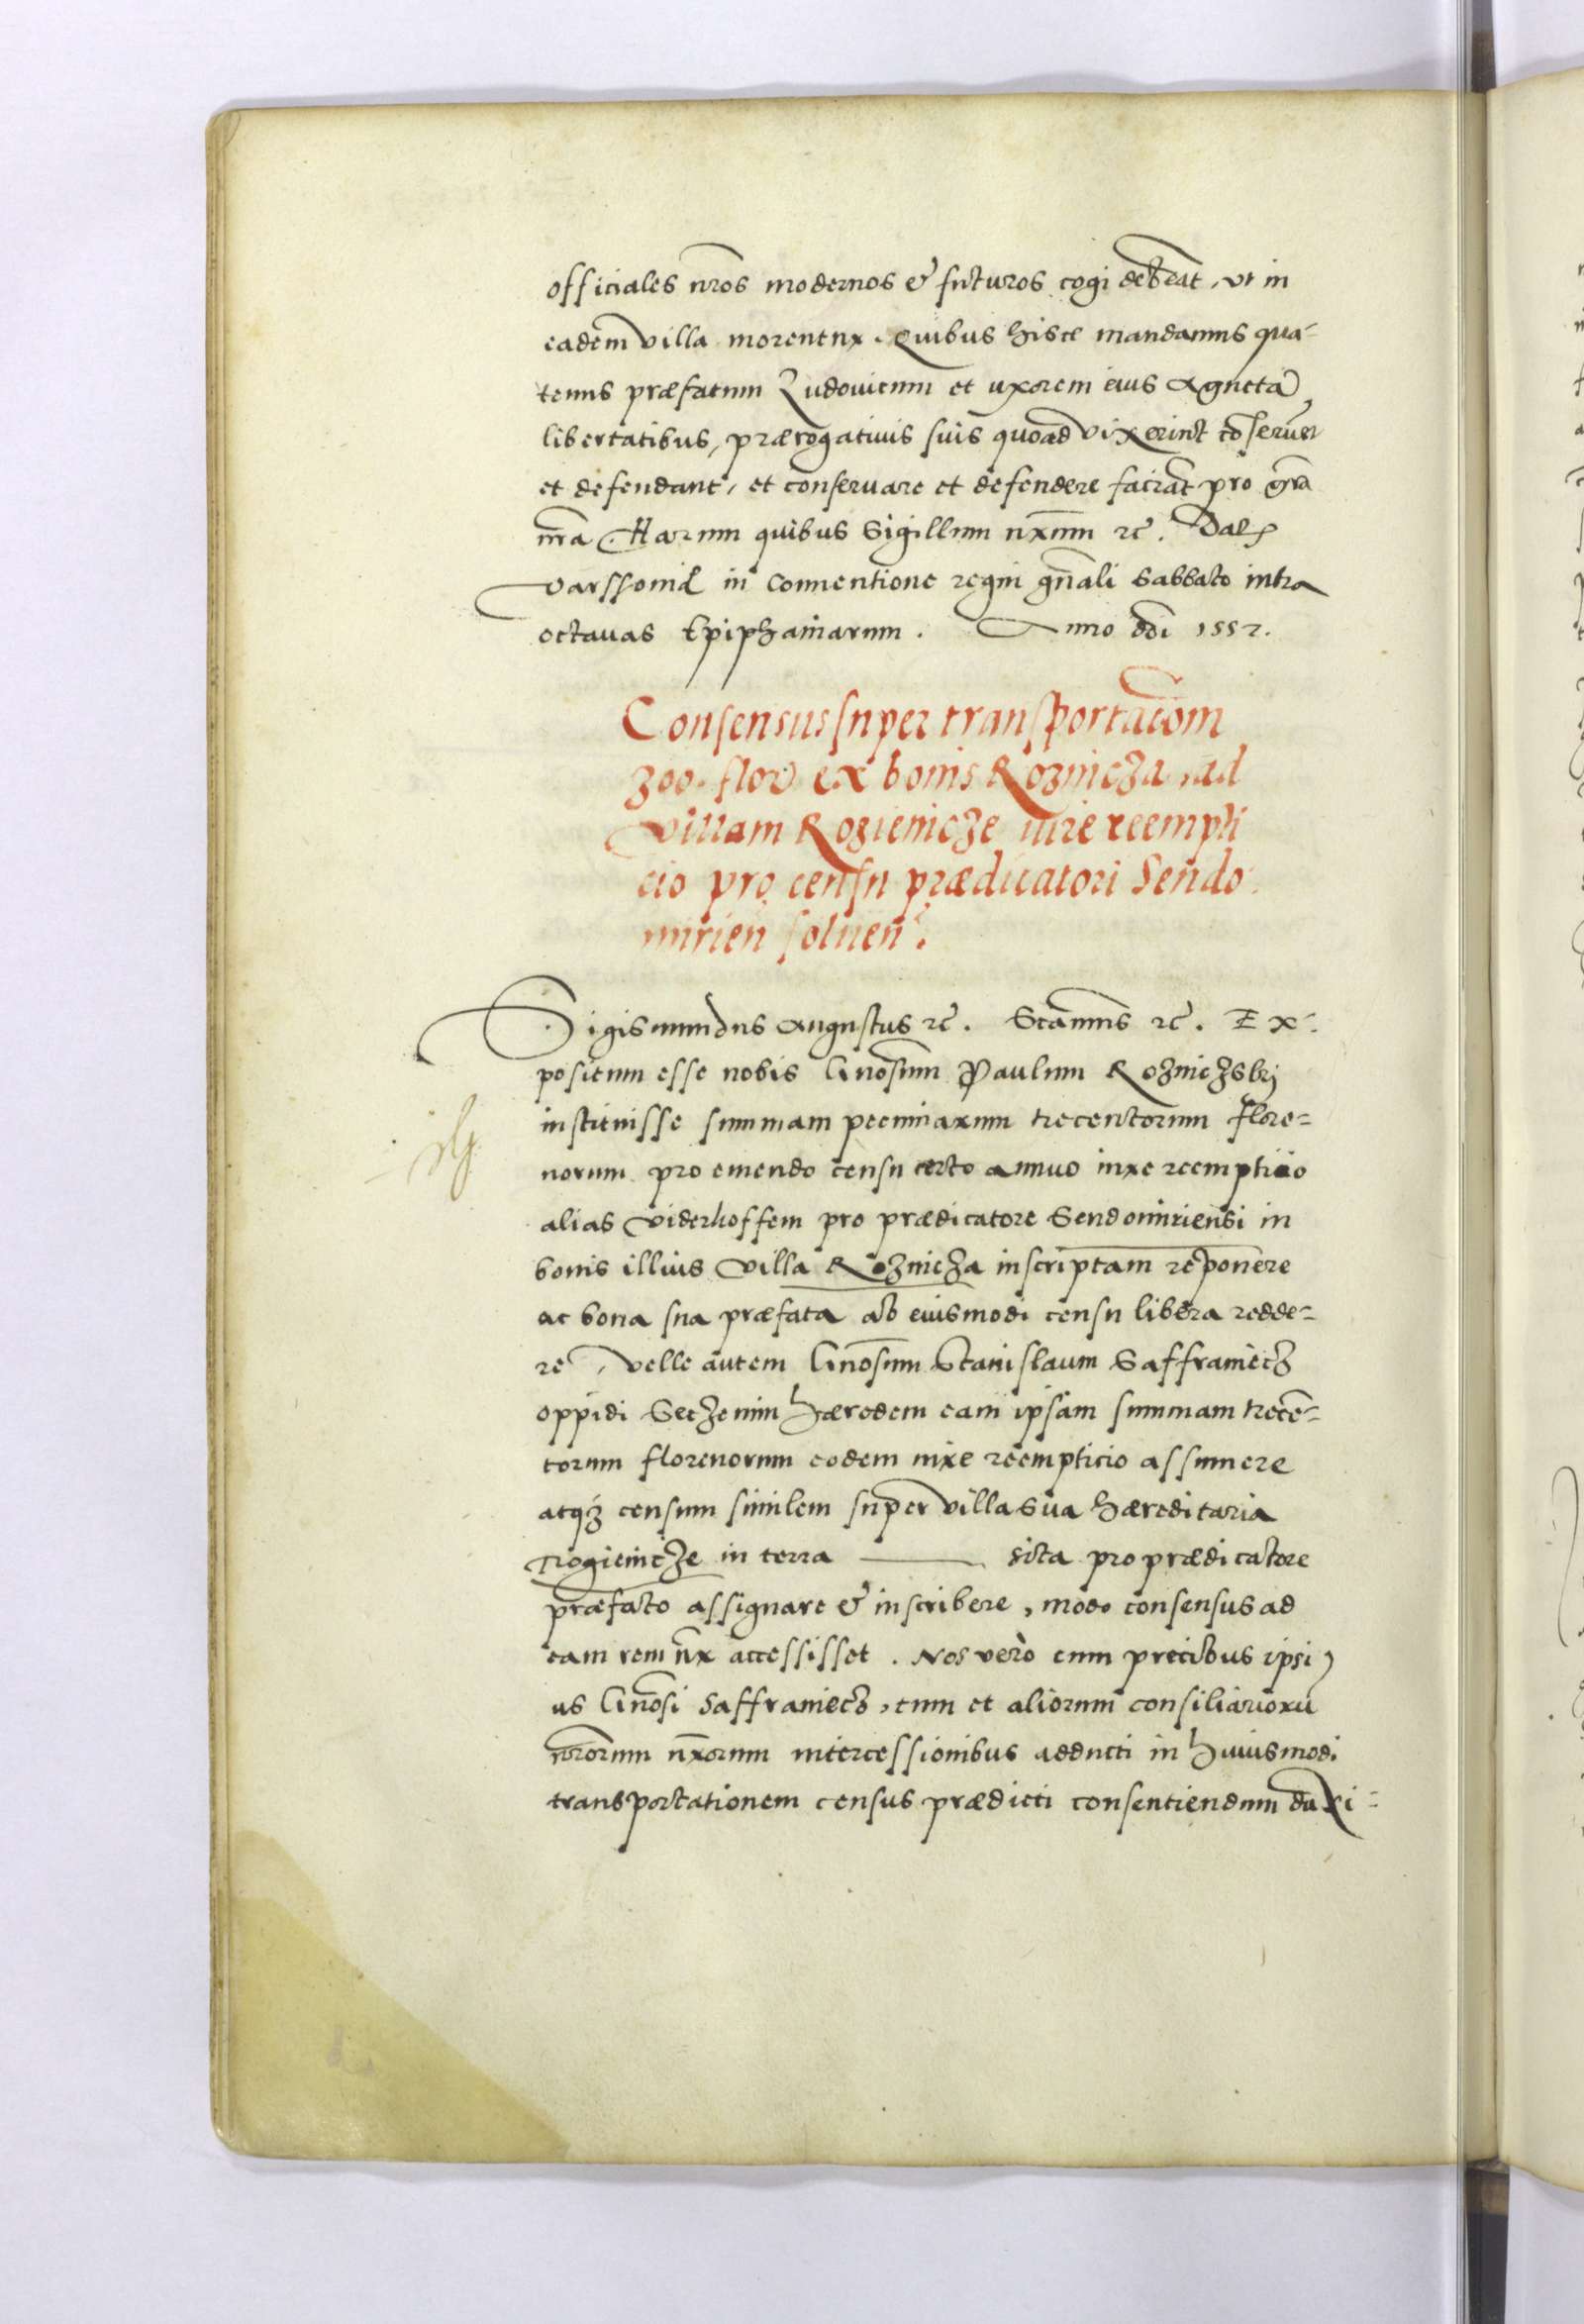 officiales nr̃os modernos & futuros cogi debeãt, ut in
eadem villa morentur. Quibus hisce mandamus qua-
tenus præfatum Ludovicum et uxorem eius Agnetã
libertatibus, prærogativis suis quoad vixerint cõservẽt
et defendant, et conservare et defendere faciãt pro grã
nr̃a. Harum quibus Sigillum nr̃um &c̃. Dat̃
Varssoviæ in Conventione regni gñali Sabbato intra
octavas Epiphaniarum. Anno dñi 1552.
Consensus super transportacõm
300. flor̃ ex bonis Roznicza, ad
villam Rozienicze iure reempti
cio pro censu prædicatori Sendo
mirieñ solveñ.
Sigismundus Augustus &c̃. Significamus &c̃. Ex-
positum esse nobis Gñosum Paulum Rozniczski
instituisse summam pecuniarum trecentorum flore-
norum pro emendo censu certo annuo iure reempticio
alias viderkoffem pro prædicatore Sendomiriensi in
bonis illius villa Roznicza inscriptam reponere
ac bona sua præfata ab eiusmodi censu libera redde-
re, velle autem Gñosum Stanislaum Saffraniecz
oppidi Seczemin hæredem eam ipsam summam trecẽ-
torum florenorum eodem iure reempticio assumere
atqꝫ censum similem super villa sua hæreditaria
Rogienicze in terra ——— sita pro prædicatore
præfato assignare & inscribere, modo consensus ad
eam rem nr̃ accessisset. Nos verò cum precibus ipsi
us Gñosi Saffraniecz, tum et aliorum consiliariorũ
nr̃orum intercessionibus adducti in huiusmodi
transportationem census prædicti consentiendum duxi-